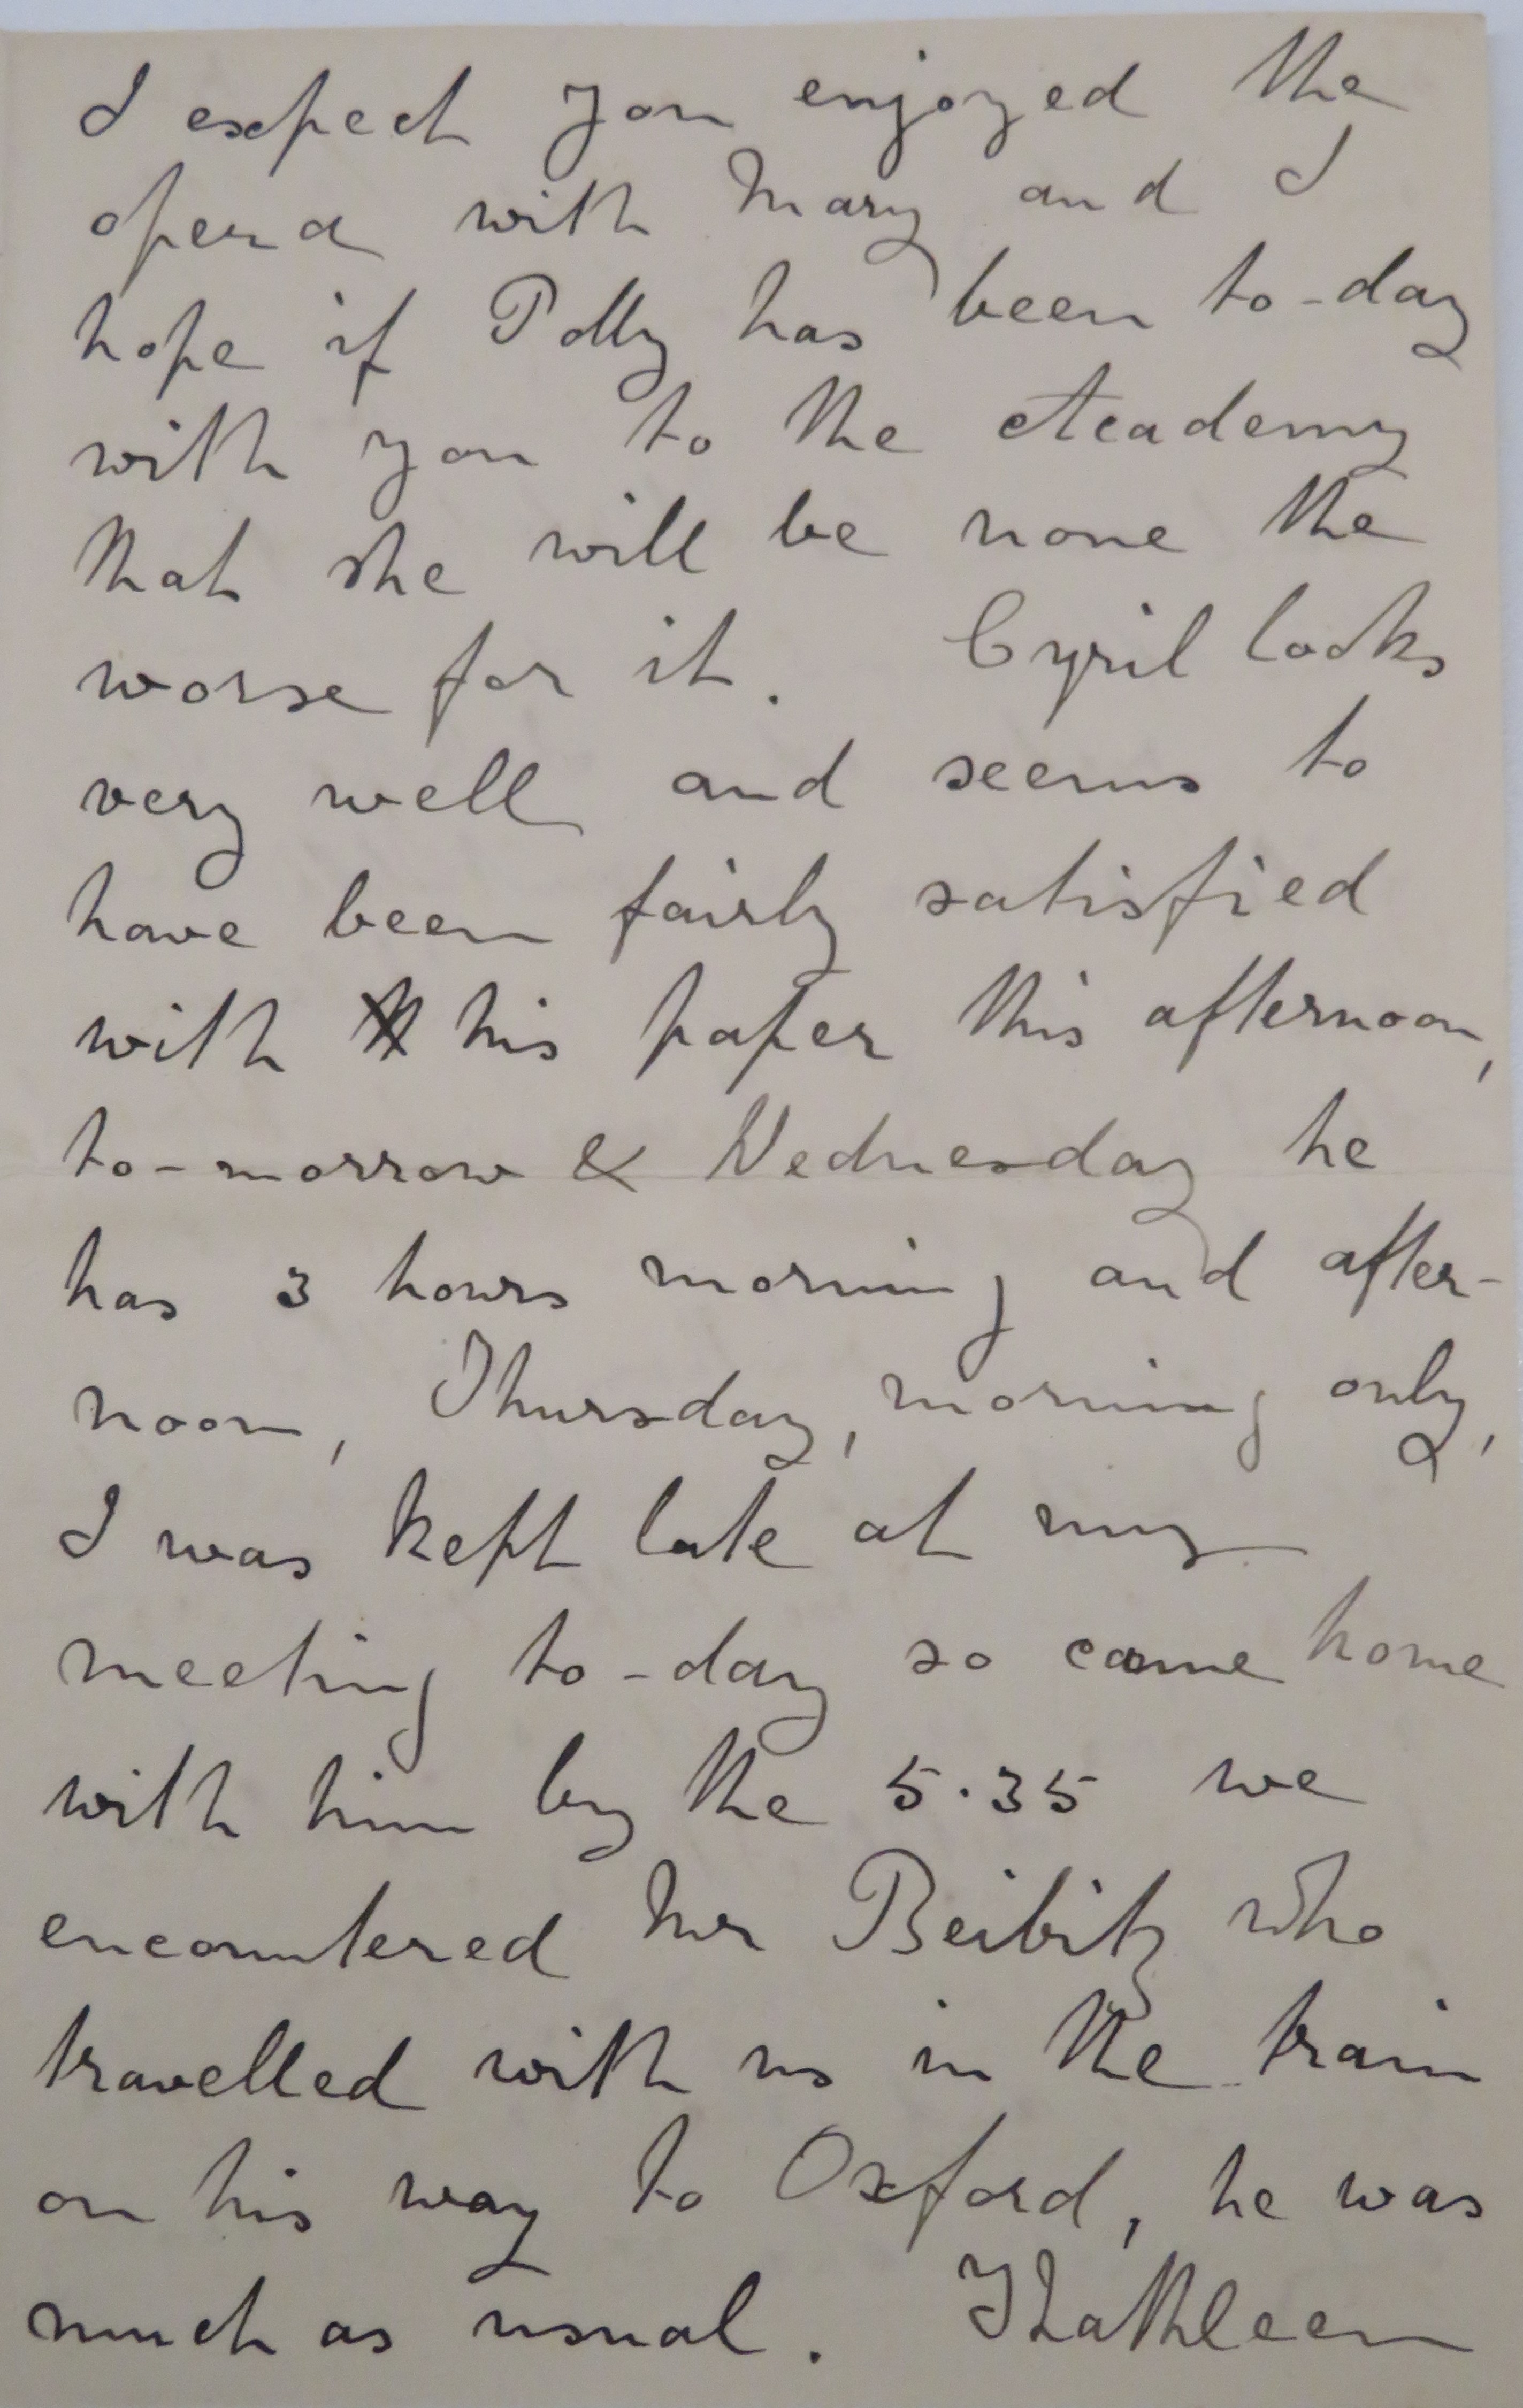 I expect you enjoyed the
opera with Mary and I
hope if Polly has been to-day
with you to the Academy
that she will be none the
worse for it. Cyril looks
very well and seems to
have been fairly satisfied
with his paper this afternoon,
to-morrow & Wednesday he
has 3 hours morning and after-
noon, Thursday, morning only,
I was kept late at my
meeting to-day so came home
with him by the 5.35 we
encountered Mr Beibitz who
travelled with us in the train
on his way to Oxford, he was
much as usual. Kathleen